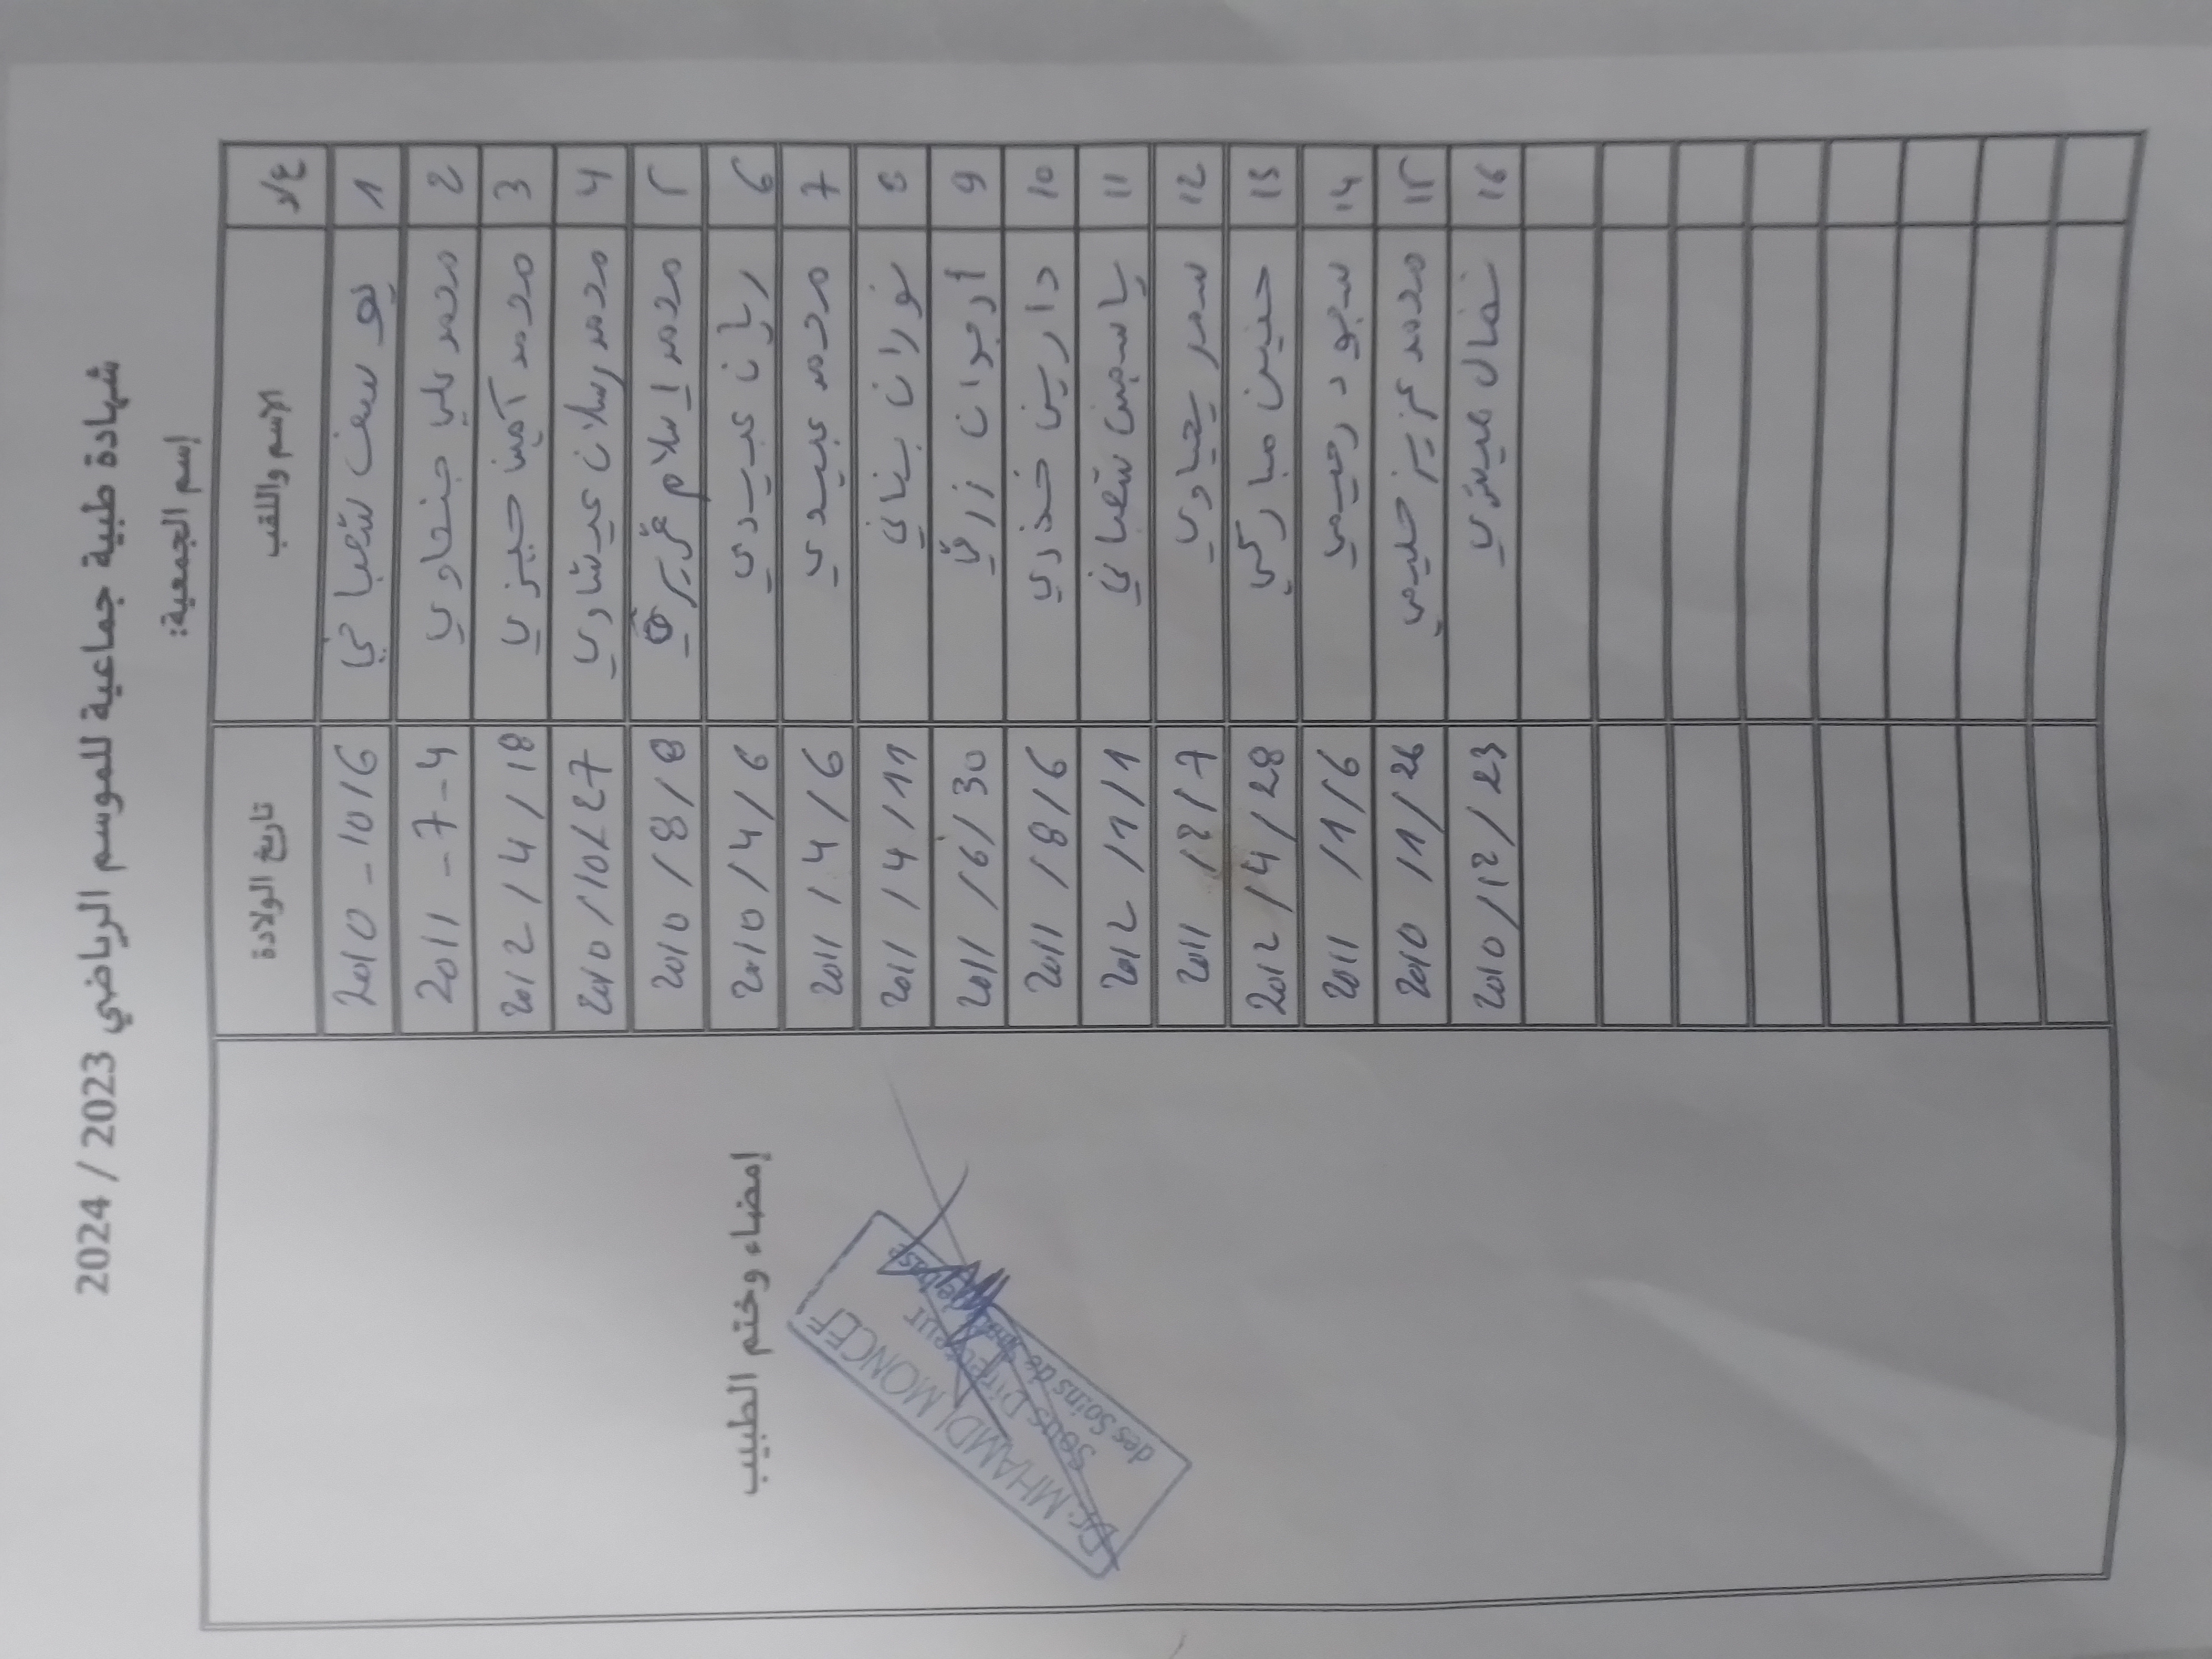 شهادة طبية جماعية للموسم الرياضي 2023 / 2024
إسم الجمعية:
ع/د الاسم واللقب تاريخ الولادة
1 يوسف شعباني 2010 - 10/6
2 محمد علي جنحاوي 2011 - 7 - 4
3 محمد آمين حيزي 2012 / 4 / 18
4 محمد رسلان عيشاوي 2010 / 10 / 27
5 محمد إسلام 2010 / 8 / 8
6 ريان عبيدي 2010 / 4 / 6
7 محمد عبيدي 2011 / 4 / 6
8 نوران بناني 2011 / 4 / 11
9 أرجوان زرقي 2011 / 6 / 30
10 دارين خذري 2011 / 8 / 6
11 ياسمين شعباني 2012 / 1 / 1
12 سمر يحياوي 2011 / 2 / 7
13 حنين مباركي 2012 / 4 / 28
14 سجود رحيمي 2011 / 1 / 6
15 محمد عزيز حليمي 2010 / 1 / 26
16 نضال 2010 / 12 / 23
إمضاء وختم الطبيب
Dr. MHAMDI MONCEF
Sous Directeur
des Soins de santé de base